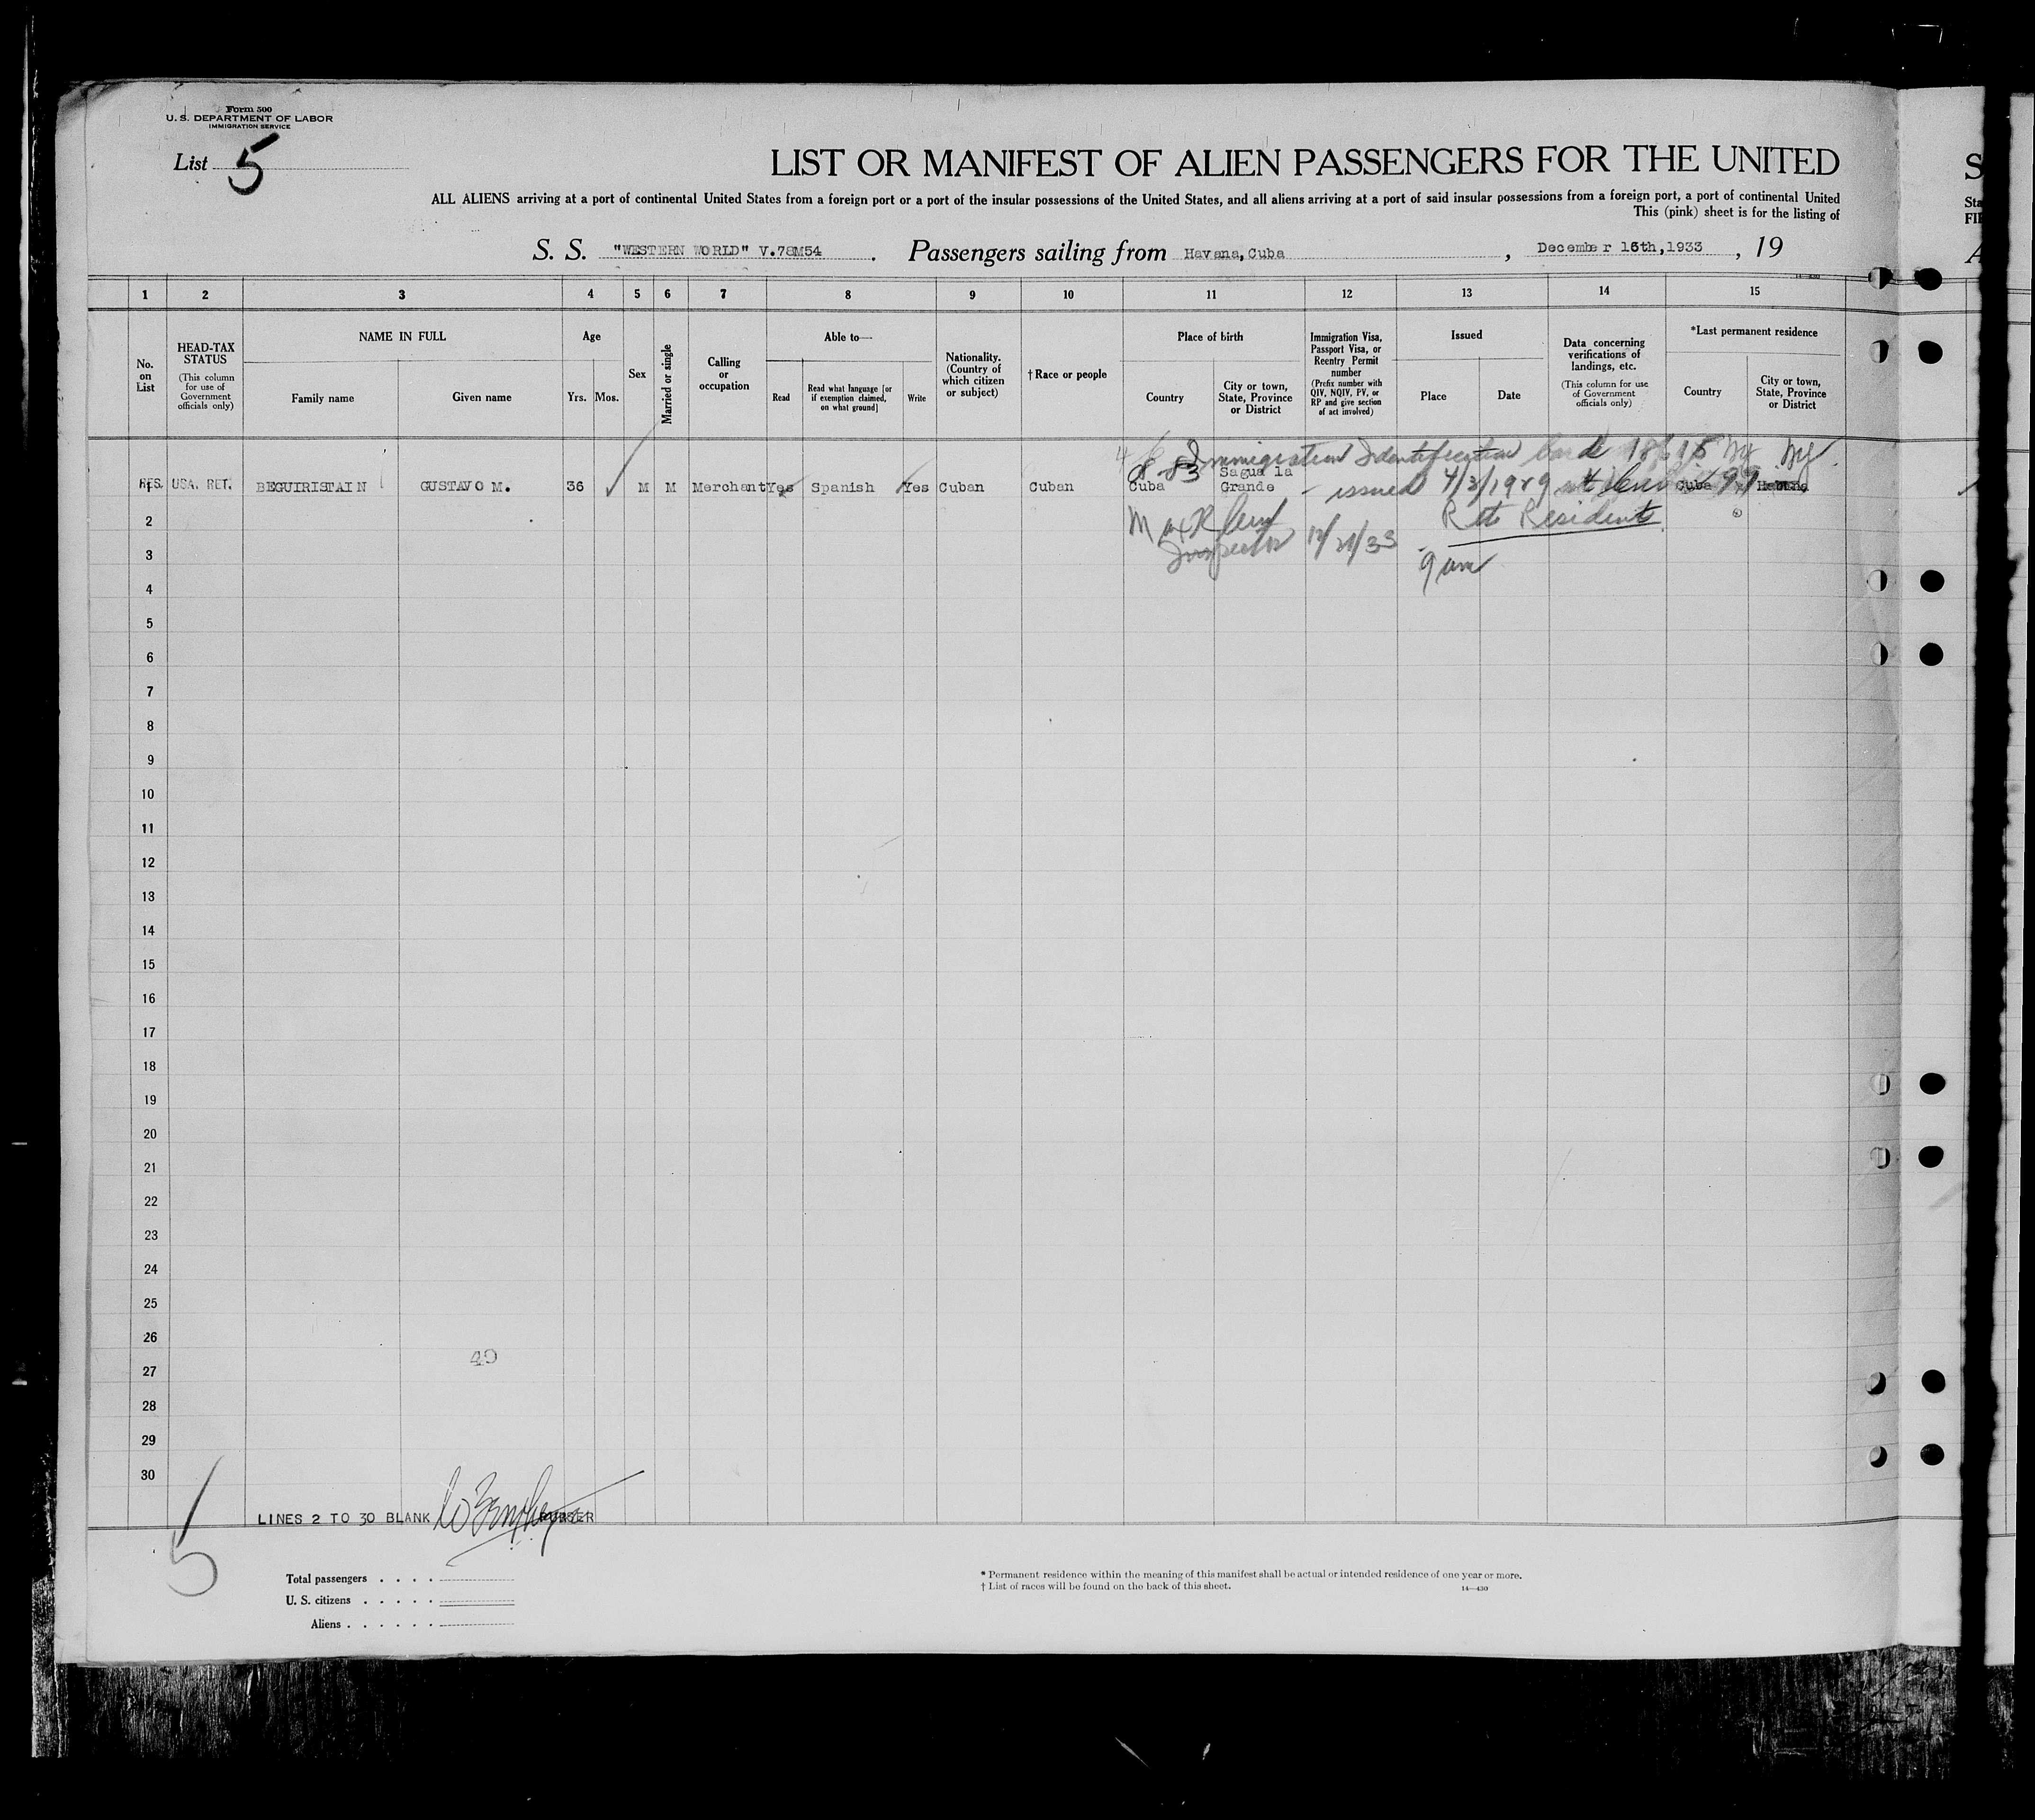 Form 500
U. S. DEPARTMENT OF LABOR
IMMIGRATION SERVICE
List 5
LIST OR MANIFEST OF ALIEN PASSENGERS FOR THE UNITED
ALL ALIENS arriving at a port of continental United States from a foreign port or a port of the insular possessions of the United States, and all aliens arriving at a port of said insular possessions from a foreign port, a port of continental United
This (pink) sheet is for the listing of
S. S. "WESTERN WORLD" V.78M54 . Passengers sailing from Havana, Cuba , December 16th, 1933 , 19
1 2 3 4 5 6 7 8 9 10 11 12 13 14 15
No. on List
HEAD-TAX STATUS
(This column for use of Government officials only)
NAME IN FULL
Family name
Given name
Age
Yrs. Mos.
Sex
Married or single
Calling or occupation
Able to—
Read
Read what language [or if exemption claimed, on what ground]
Write
Nationality. (Country of which citizen or subject)
†Race or people
Place of birth
Country
City or town, State, Province or District
Immigration Visa, Passport Visa, or Reentry Permit number
(Prefix number with QIV, NQIV, PV, or RP and give section of act involved)
Issued
Place
Date
Data concerning verifications of landings, etc.
(This column for use of Government officials only)
*Last permanent residence
Country
City or town, State, Province or District
Immigration Identification Card 18615 NY NY
RES. USA. RET. BEGUIRISTAIN GUSTAVO M. 36 M M Merchant Yes Spanish Yes Cuban Cuban Cuba Sagua la Grande - issued 4/3/1929 Cuba Habana
Residents
Inspector 12/21/33
9 am
2
3
4
5
6
7
8
9
10
11
12
13
14
15
16
17
18
19
20
21
22
23
24
25
26
49
27
28
29
30
LINES 2 TO 30 BLANK PURSER
5
Total passengers . . . .
U. S. citizens . . . . .
Aliens . . . . . .
* Permanent residence within the meaning of this manifest shall be actual or intended residence of one year or more.
† List of races will be found on the back of this sheet.
14—430